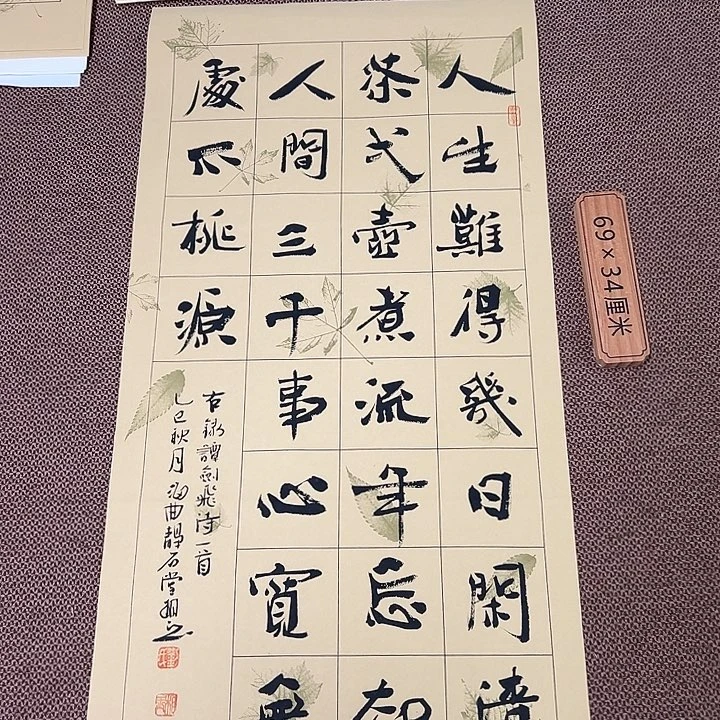 人生難得幾日閑清
茶弌壺煮流年忘却
人間三千事心寬無
處不桃源
右錄譚劍飛詩一首
乙巳秋月海曲靜石堂
69×34厘米